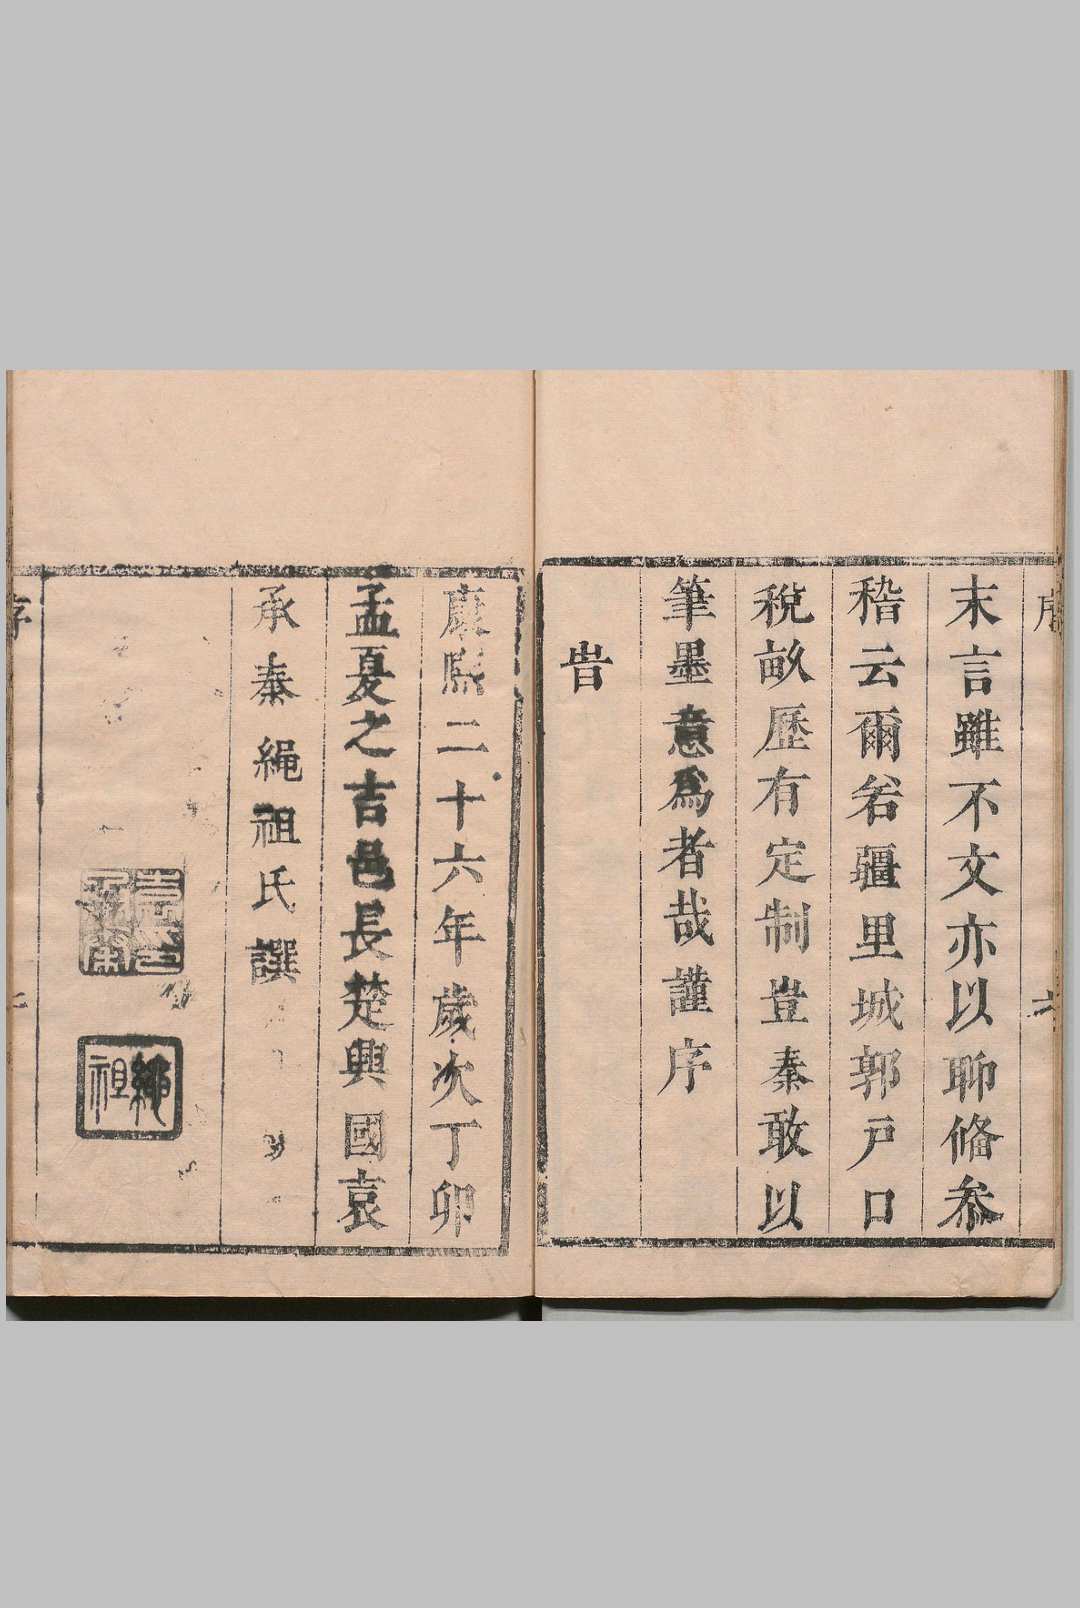 末言雖不文亦以聊脩叅
稽云爾若疆里城郭戶口
稅畝歷有定制豈秦敢以
筆墨意爲者哉謹序
旹
康熙二十六年歲次丁卯
孟夏之吉邑長楚興國袁
承秦繩祖氏撰
繩祖
序